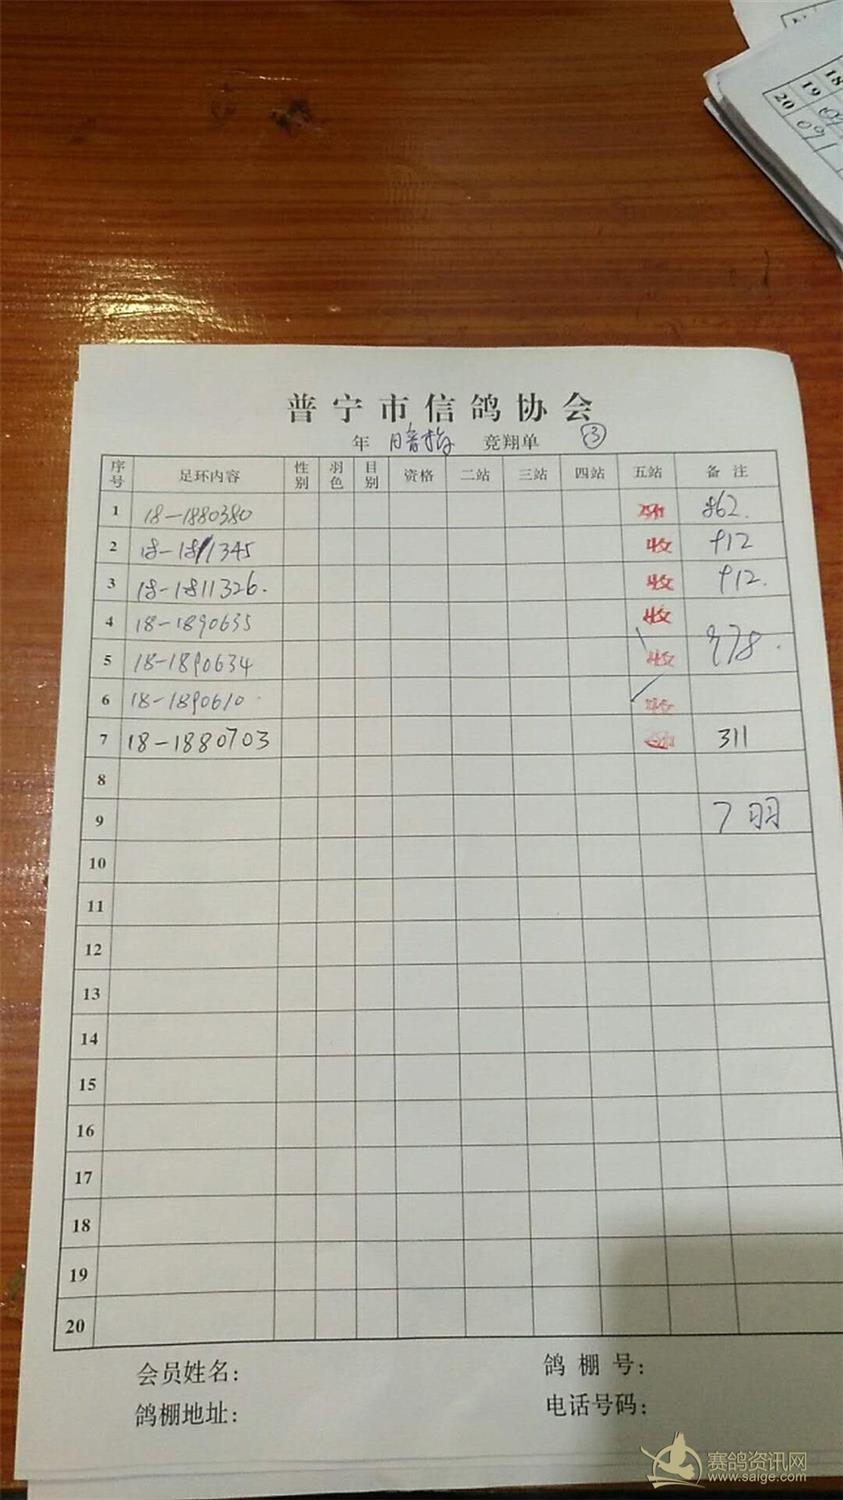 18
19
20 091
普宁市信鸽协会
年 暗插 竞翔单 ③
序号 足环内容 性别 羽色 目别 资格 二站 三站 四站 五站 备注
1 18-1880380 862.
2 18-1811345 收 912
3 18-1811326. 收 912.
4 18-1890635 收
5 18-1890634 收 978.
6 18-1890610. 收
7 18-1880703 311
8
9 7羽
10
11
12
13
14
15
16
17
18
19
20
会员姓名: 鸽棚号:
鸽棚地址: 电话号码:
赛鸽资讯网
www.saige.com